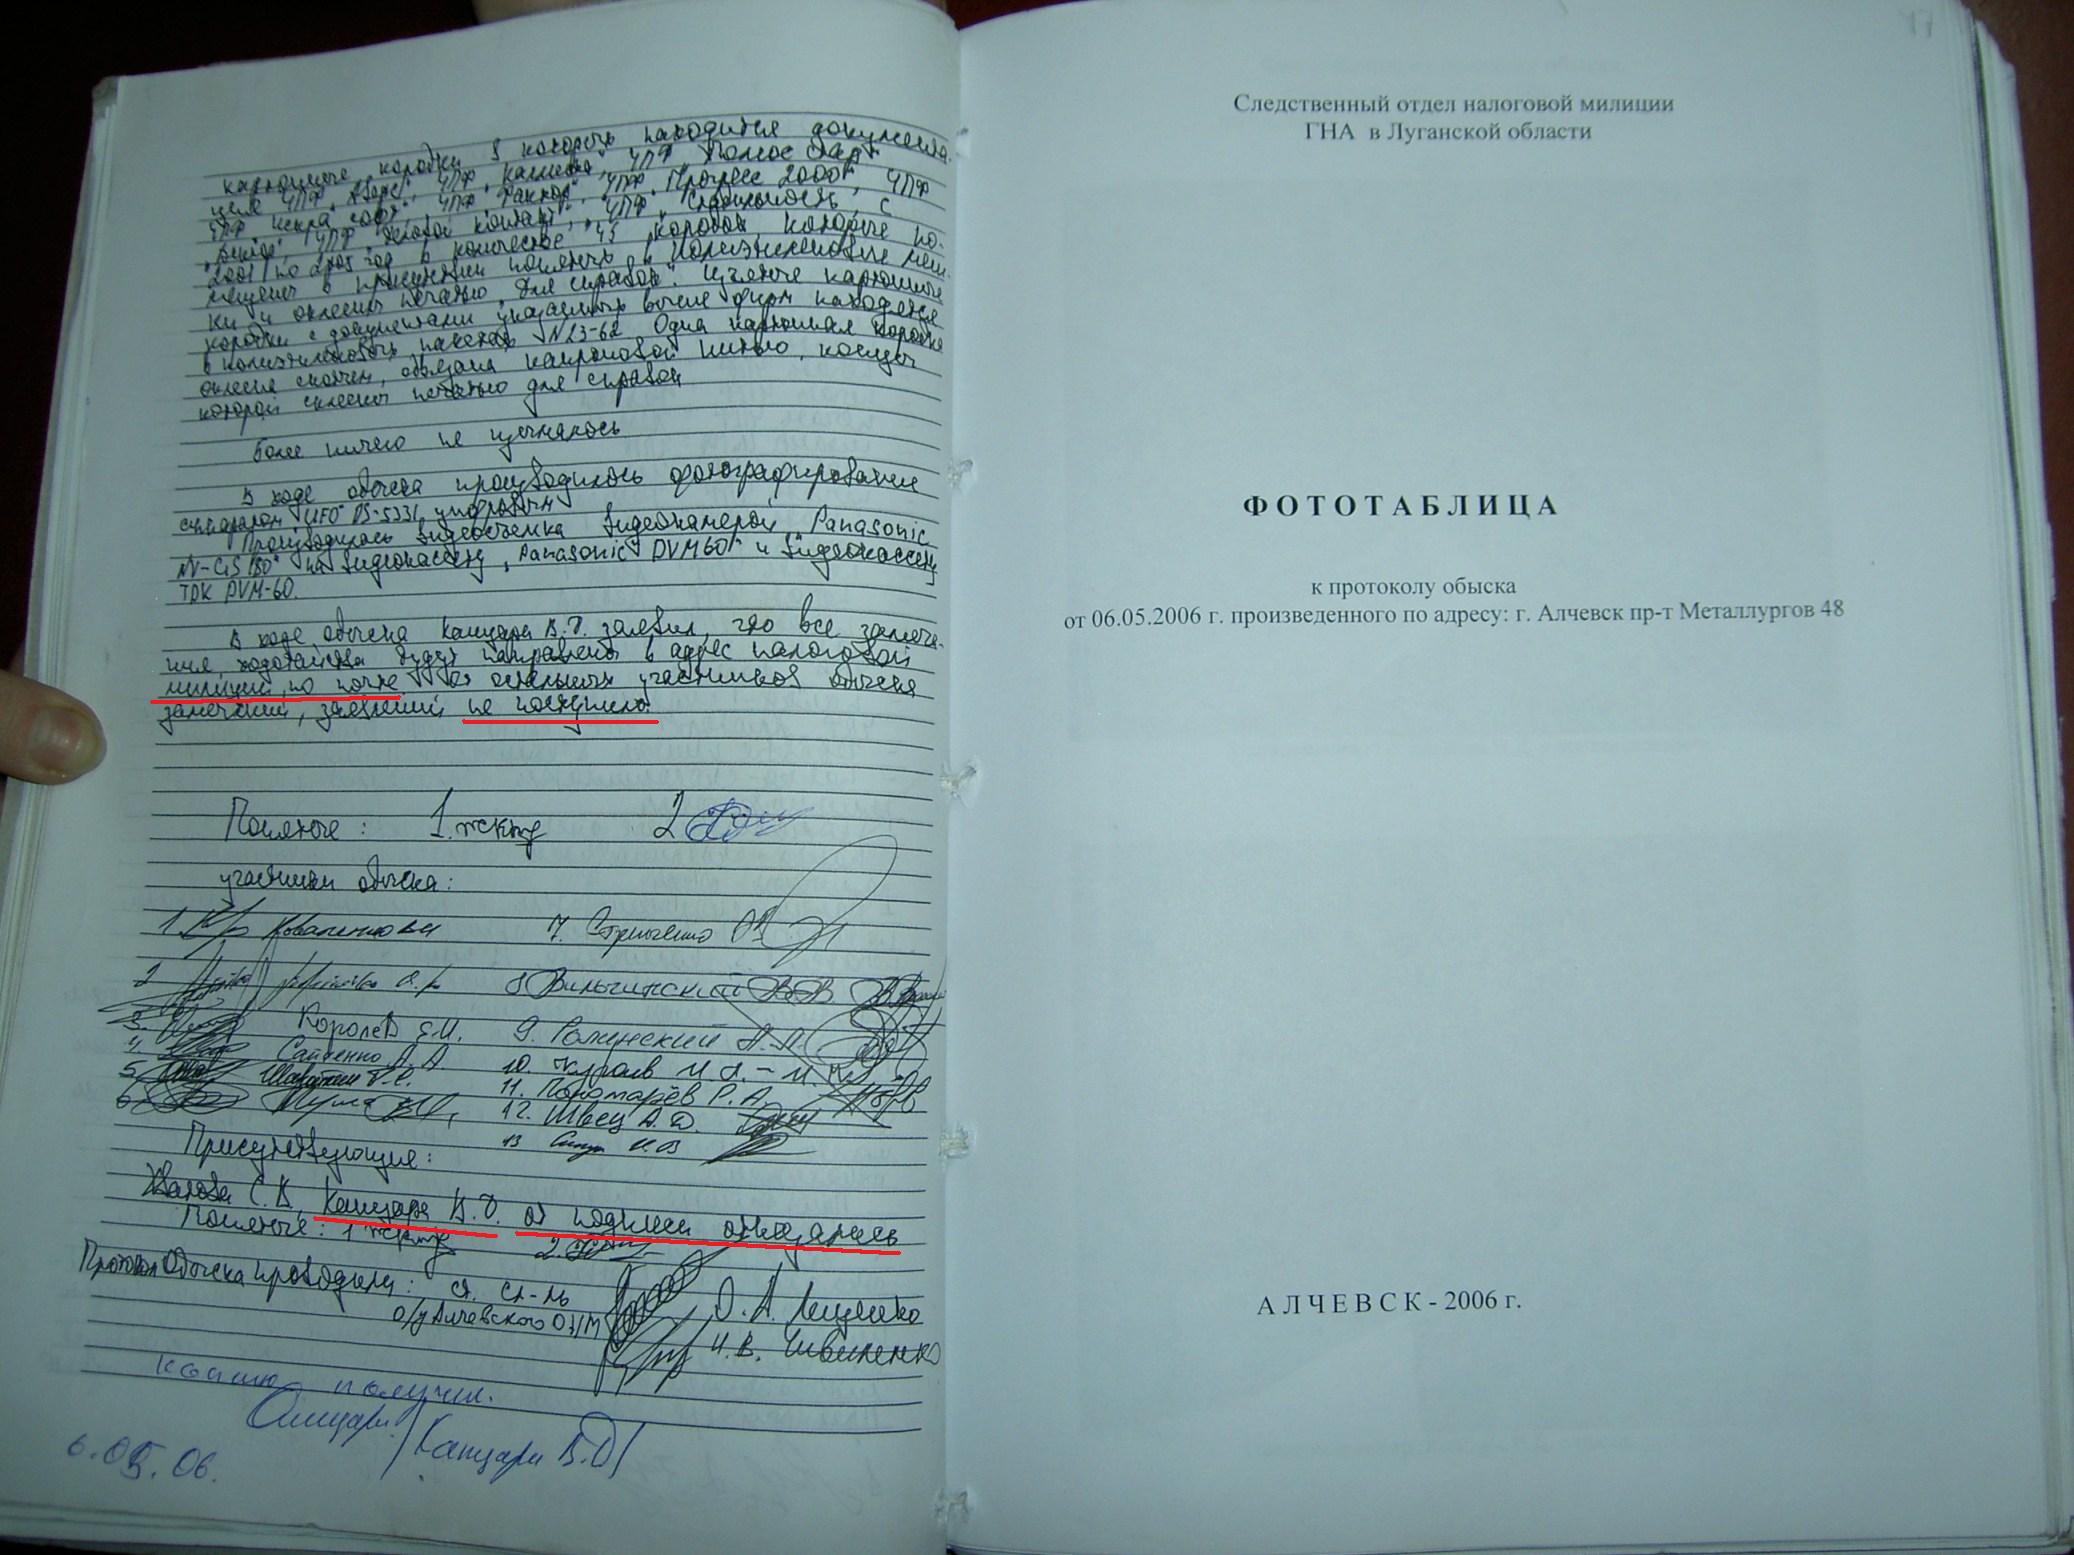 картонные коробки в которых находятся документы
ЧПФ
ЧПФ "Искра софт", ЧПФ "Фактор", ЧПФ "Прогресс 2000", ЧПФ
ЧПФ "Деловой контакт", ЧПФ "Стабильность", с
2001 по 2005 год в количестве 43 коробок, которые по-
мещены в присутствии понятых в полиэтиленовые меш-
ки и оклеены печатью "Для справок". Изъятые картонные
коробки с документами указанных выше фирм находятся
в полиэтиленовых пакетах N 23-62. Одна картонная коробка
оклеена скотчем, обвязана капроновой нитью, концы
которой оклеены печатью для справок
Более ничего не изымалось
В ходе обыска производилось фотографирование
аппаратом UFO DS-5331 цифровым
Производилась видеосъемка видеокамерой "Panasonic
NV-GS 180" на видеокассету "Panasonic DVM60" и видеокассету
TDK DVM-60.
В ходе обыска Канцара В.Д. заявил, что все замеча-
ния, ходатайства будут направлены в адрес налоговой
милиции по почте. От остальных участников обыска
замечаний, заявлений не поступило.
Понятые: 1. 2
участники обыска:
1. Коваленко 7.
2 8 Вильчинский В.В.
3. Королёв Е.И. 9. Ролинский А.А.
4. Сайченко А.А 10. И.А.
5. 11. Пономарёв Р.А.
6. 12. Швец А.Д.
13
Присутствующие:
С.В, Канцара В.Д. от подписи отказались
Понятые: 1 2.
Протокол обыска проводили: ст. сл-ль О.А. Лещенко
о/у Алчевского И.В.
копию получил.
/Канцара В.Д/
6.05.06.
Следственный отдел налоговой милиции
ГНА в Луганской области
ФОТОТАБЛИЦА
к протоколу обыска
от 06.05.2006 г. произведенного по адресу: г. Алчевск пр-т Металлургов 48
АЛЧЕВСК - 2006 г.